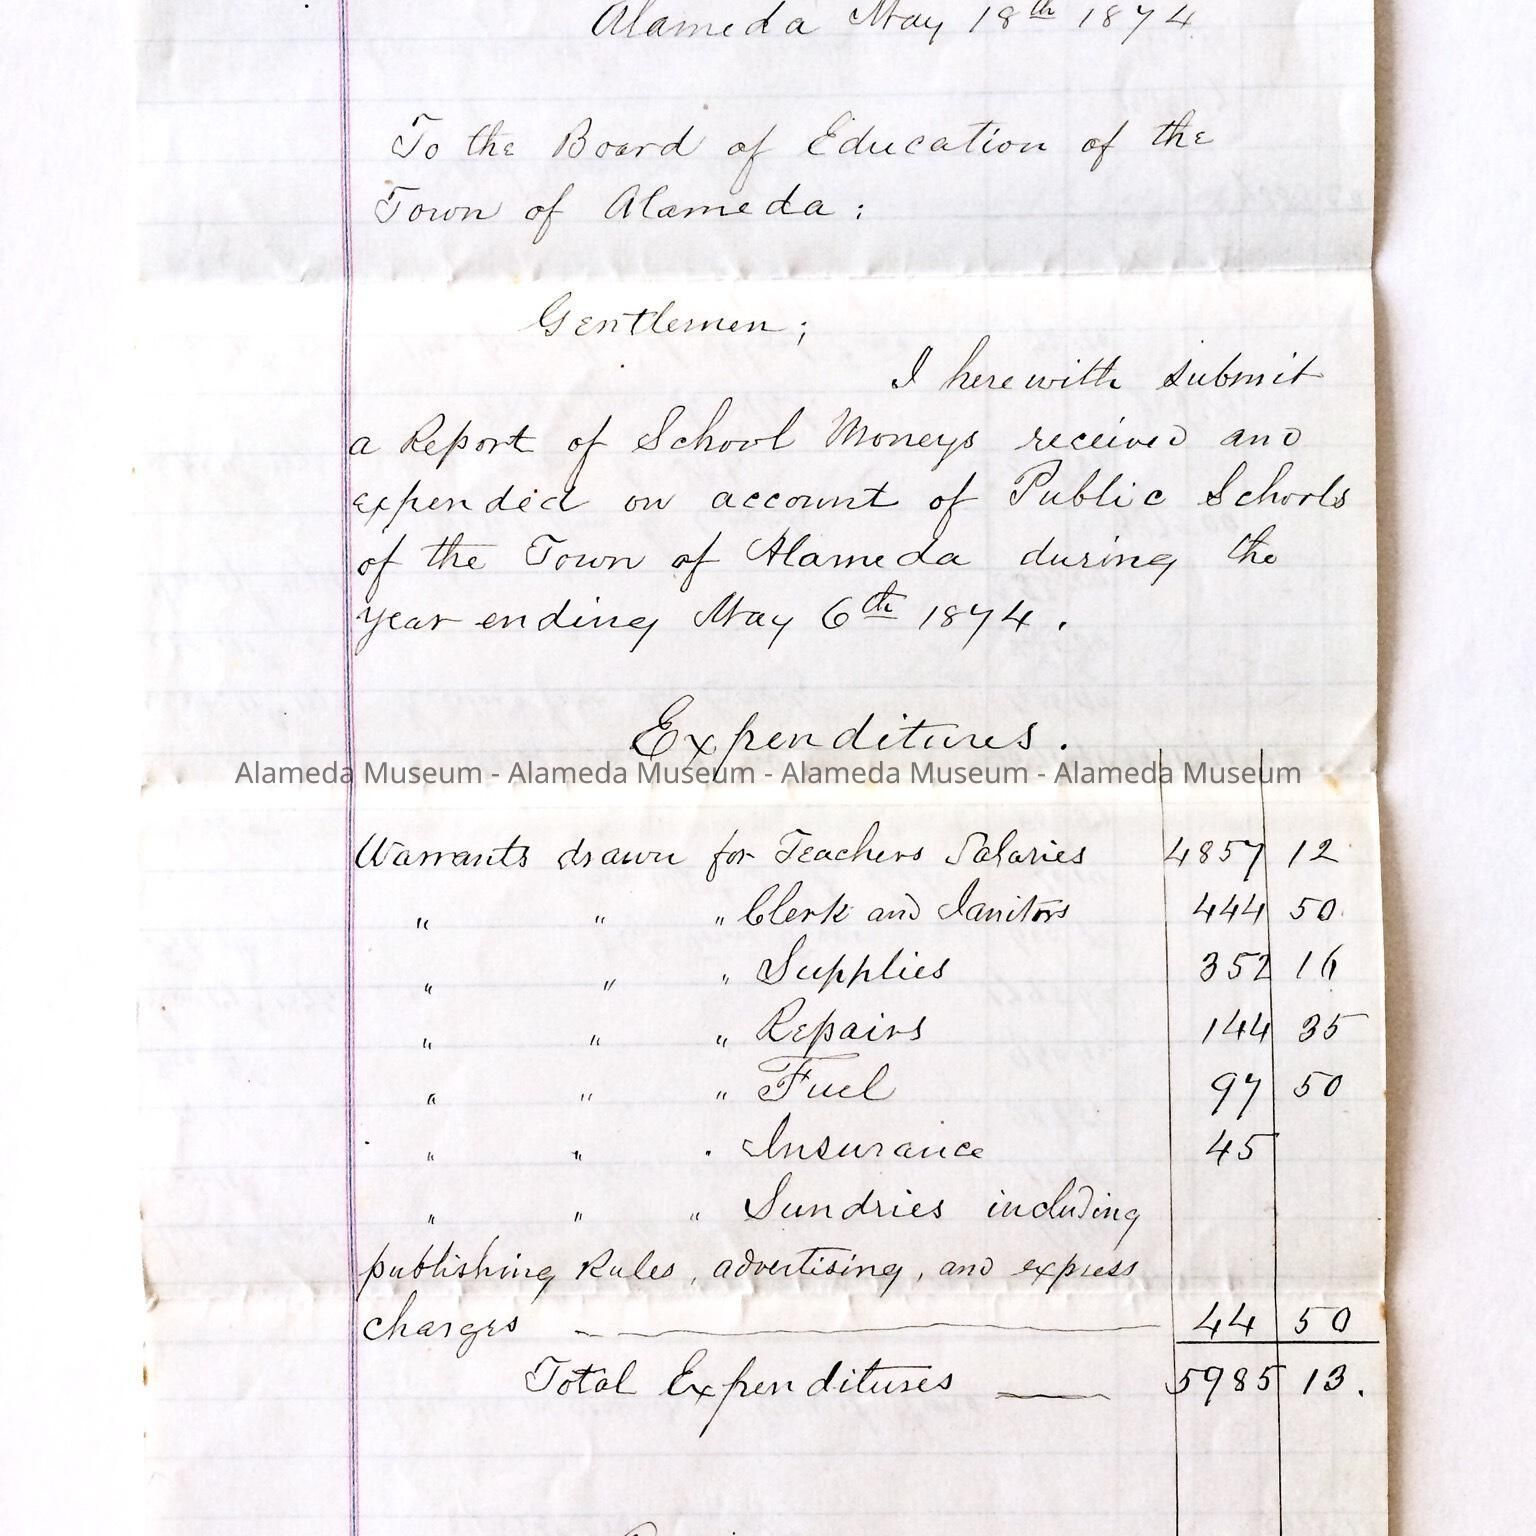 Alameda May 18th 1874
To the Board of Education of the
Town of Alameda:
Gentlemen;
I herewith submit
a Report of School Moneys received and
expended on account of Public Schools
of the Town of Alameda during the
year ending May 6th 1874.
Expenditures.
Alameda Museum - Alameda Museum - Alameda Museum - Alameda Museum
Warrants drawn for Teachers Salaries 4857 12
" " " Clerk and Janitors 444 50
" " " Supplies 352 16
" " " Repairs 144 35
" " " Fuel 97 50
" " " Insurance 45
" " " Sundries including
publishing Rules, advertising, and express
charges — 44 50
Total Expenditures — 5985 13.